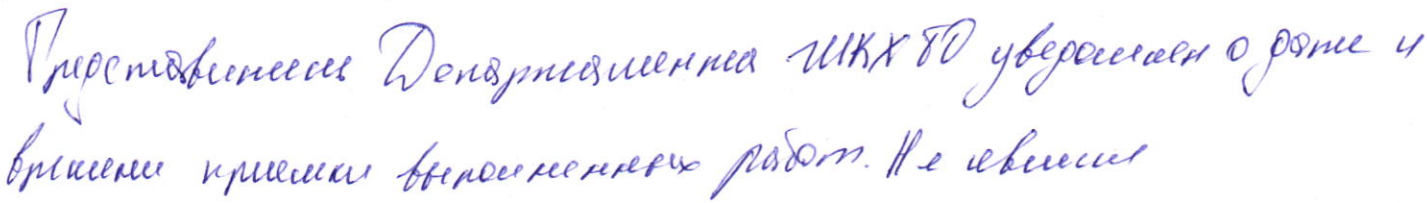 Представитель Департамента ЖКХ БО уведомлен о дате и
времени приемки выполненных работ. Не явился